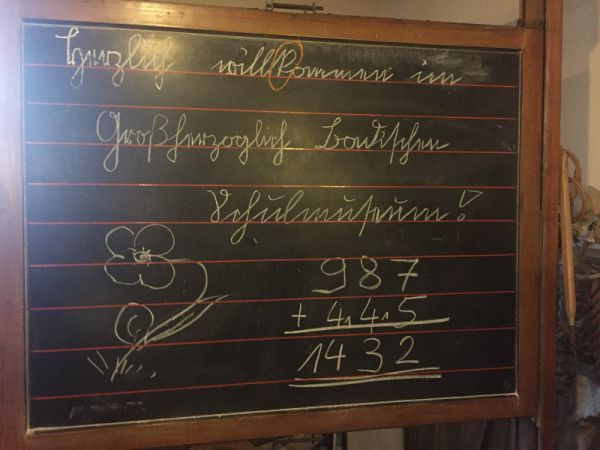 Herzlich willkommen im
Großherzoglich Badischen
Schulmuseum!
987
+ 445
1432